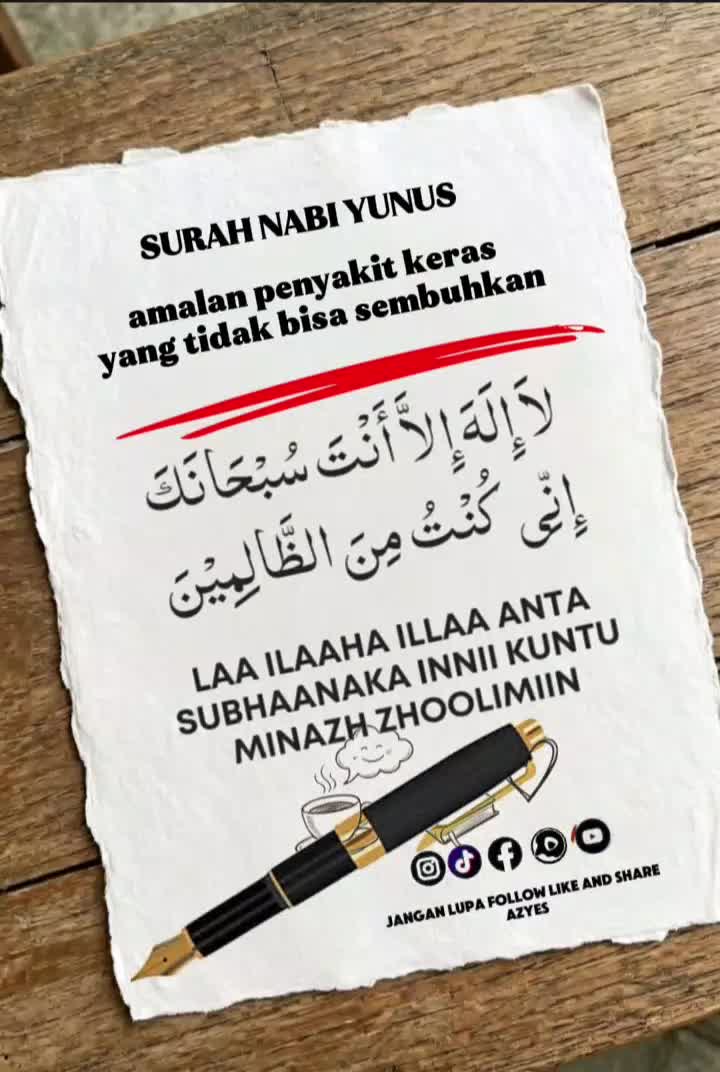 SURAH NABI YUNUS
amalan penyakit keras
yang tidak bisa sembuhkan
لَا إِلَهَ إِلاَّ أَنْتَ سُبْحَانَكَ
إِنِّى كُنْتُ مِنَ الظَّالِمِيْنَ
LAA ILAAHA ILLAA ANTA
SUBHAANAKA INNII KUNTU
MINAZH ZHOOLIMIIN
JANGAN LUPA FOLLOW LIKE AND SHARE
AZYES